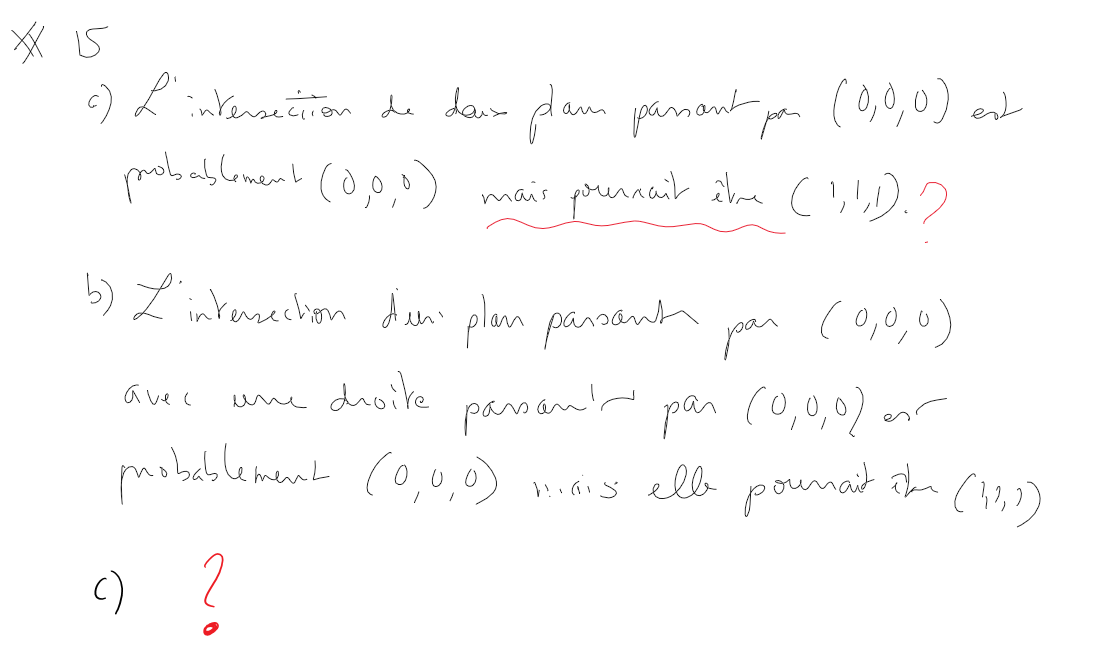 15
c) L'intersection de deux plans passant par (0,0,0) est
probablement (0,0,0) mais pourrait être (1,1,1). ?
b) L'intersection d'un plan passant par (0,0,0)
avec une droite passant par (0,0,0) est
probablement (0,0,0) mais elle pourrait être (1,1,1)
c) ?